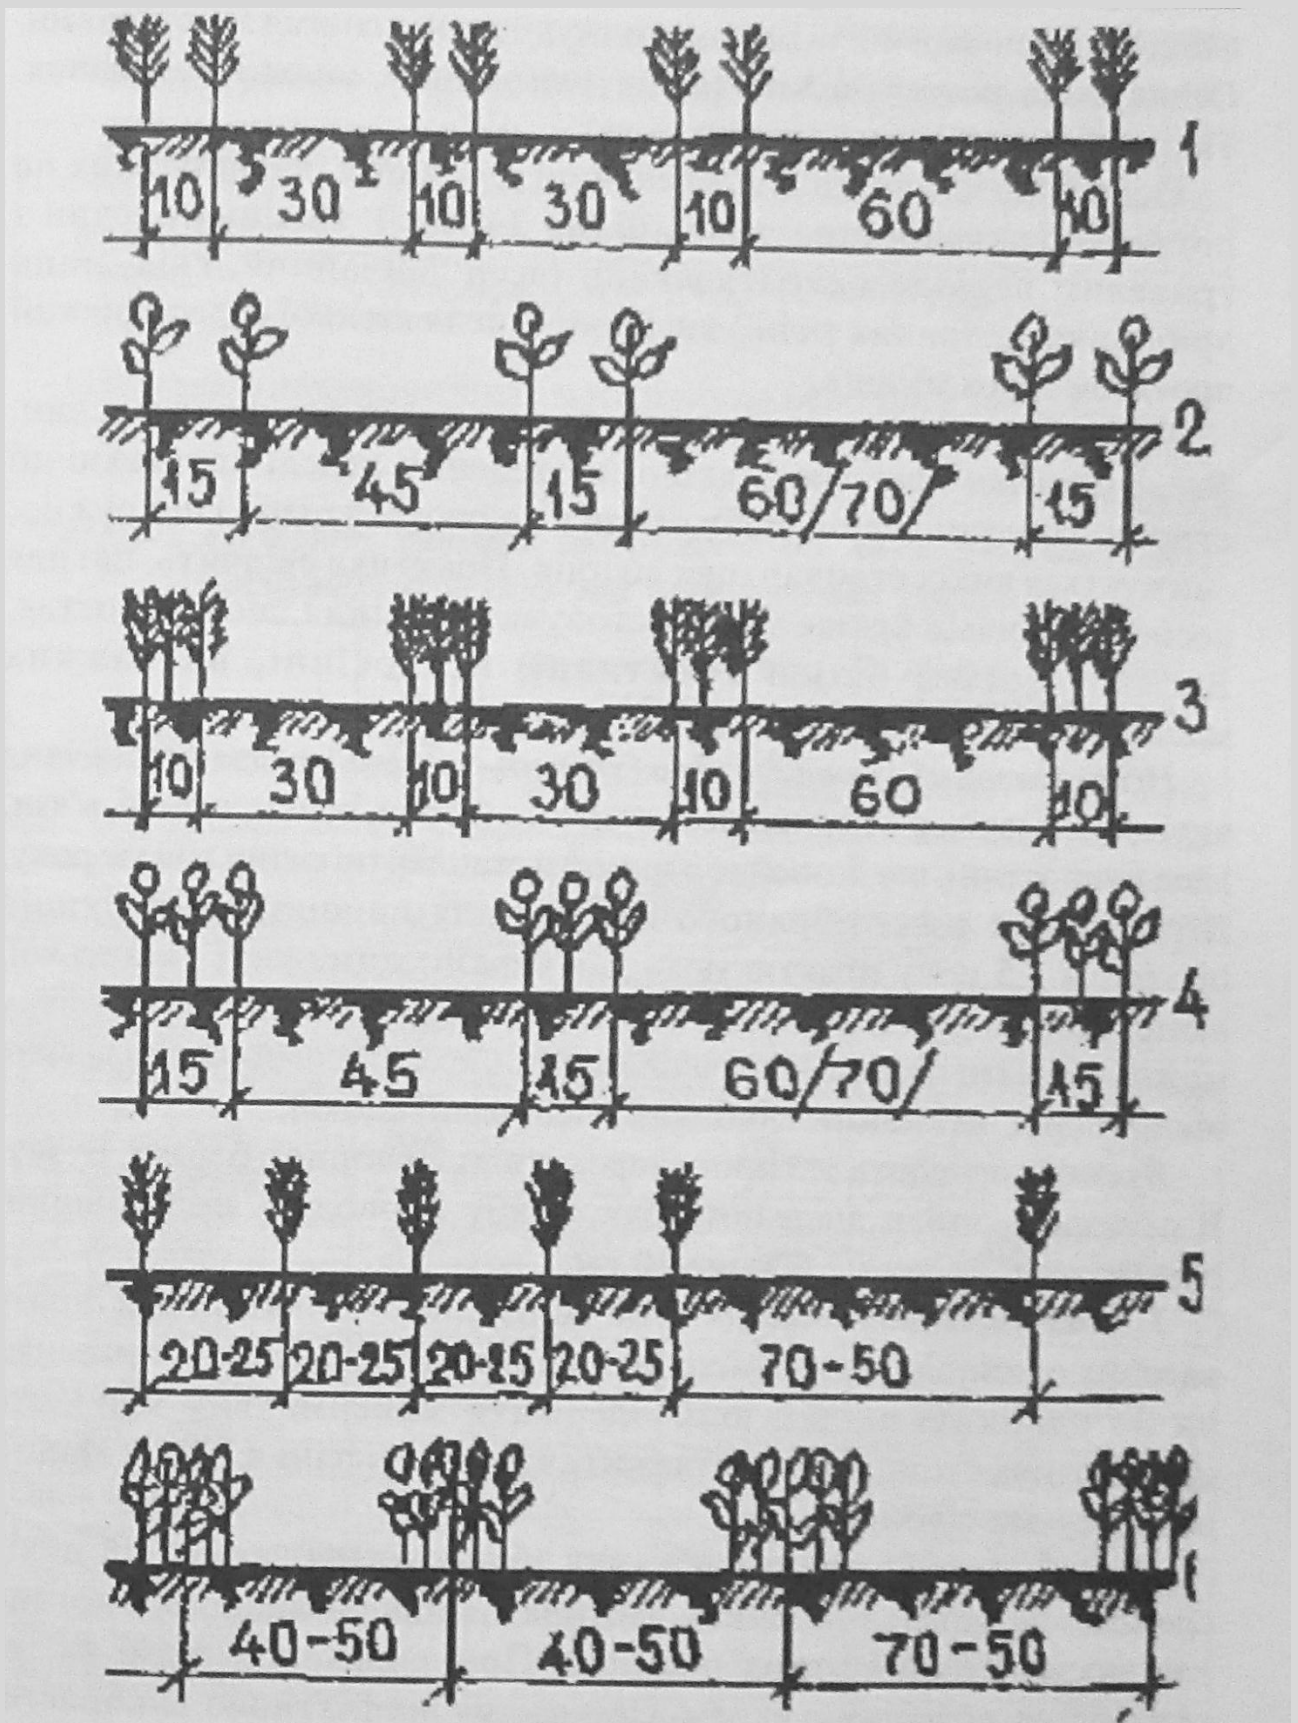 1
10 30 10 30 10 60 10
2
15 45 15 60/70/ 15
3
10 30 10 30 10 60 10
4
15 45 15 60/70/ 15
5
20-25 20-25 20-25 20-25 70-50
40-50 40-50 70-50